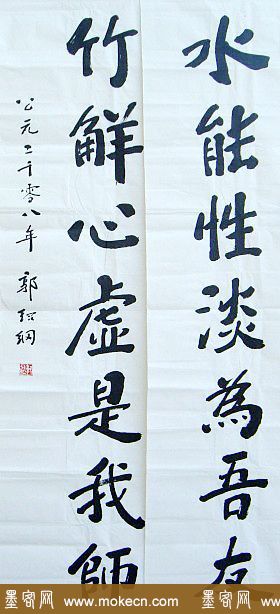 水能性淡為吾友
竹解心虛是我師
公元二千零八年 郭紹綱
墨客网 www.mokecn.com 墨客网